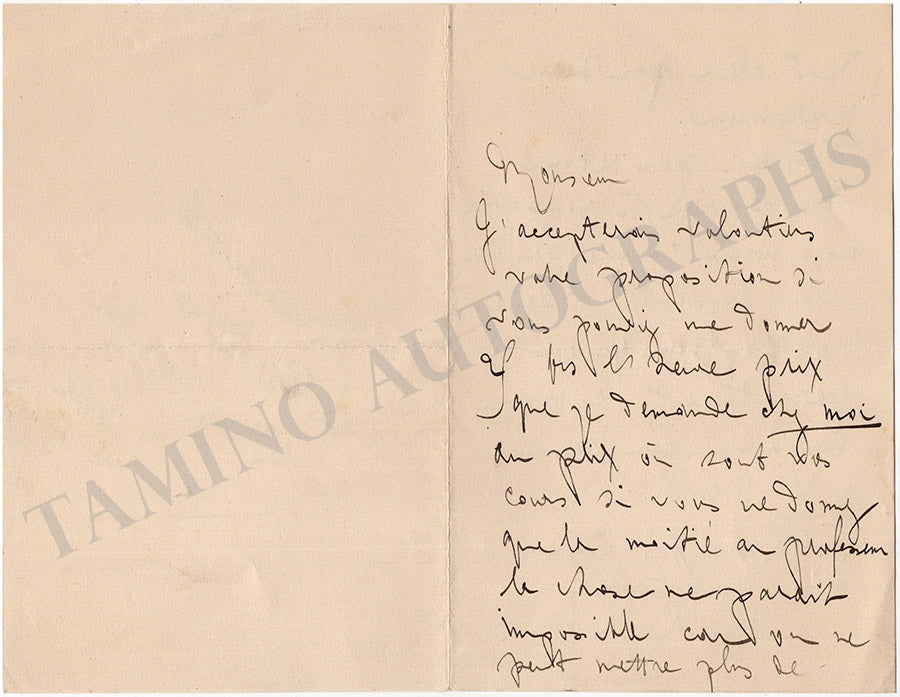 Monsieur
J'accepterais volontiers
votre proposition si
vous pouviez me donner
frs l'heure prix
que je demande chez moi
au prix où sont vos
cours si vous ne donnez
que la moitié au professeur
la chose me parait
impossible car on ne
peut mettre plus de
TAMINO AUTOGRAPHS